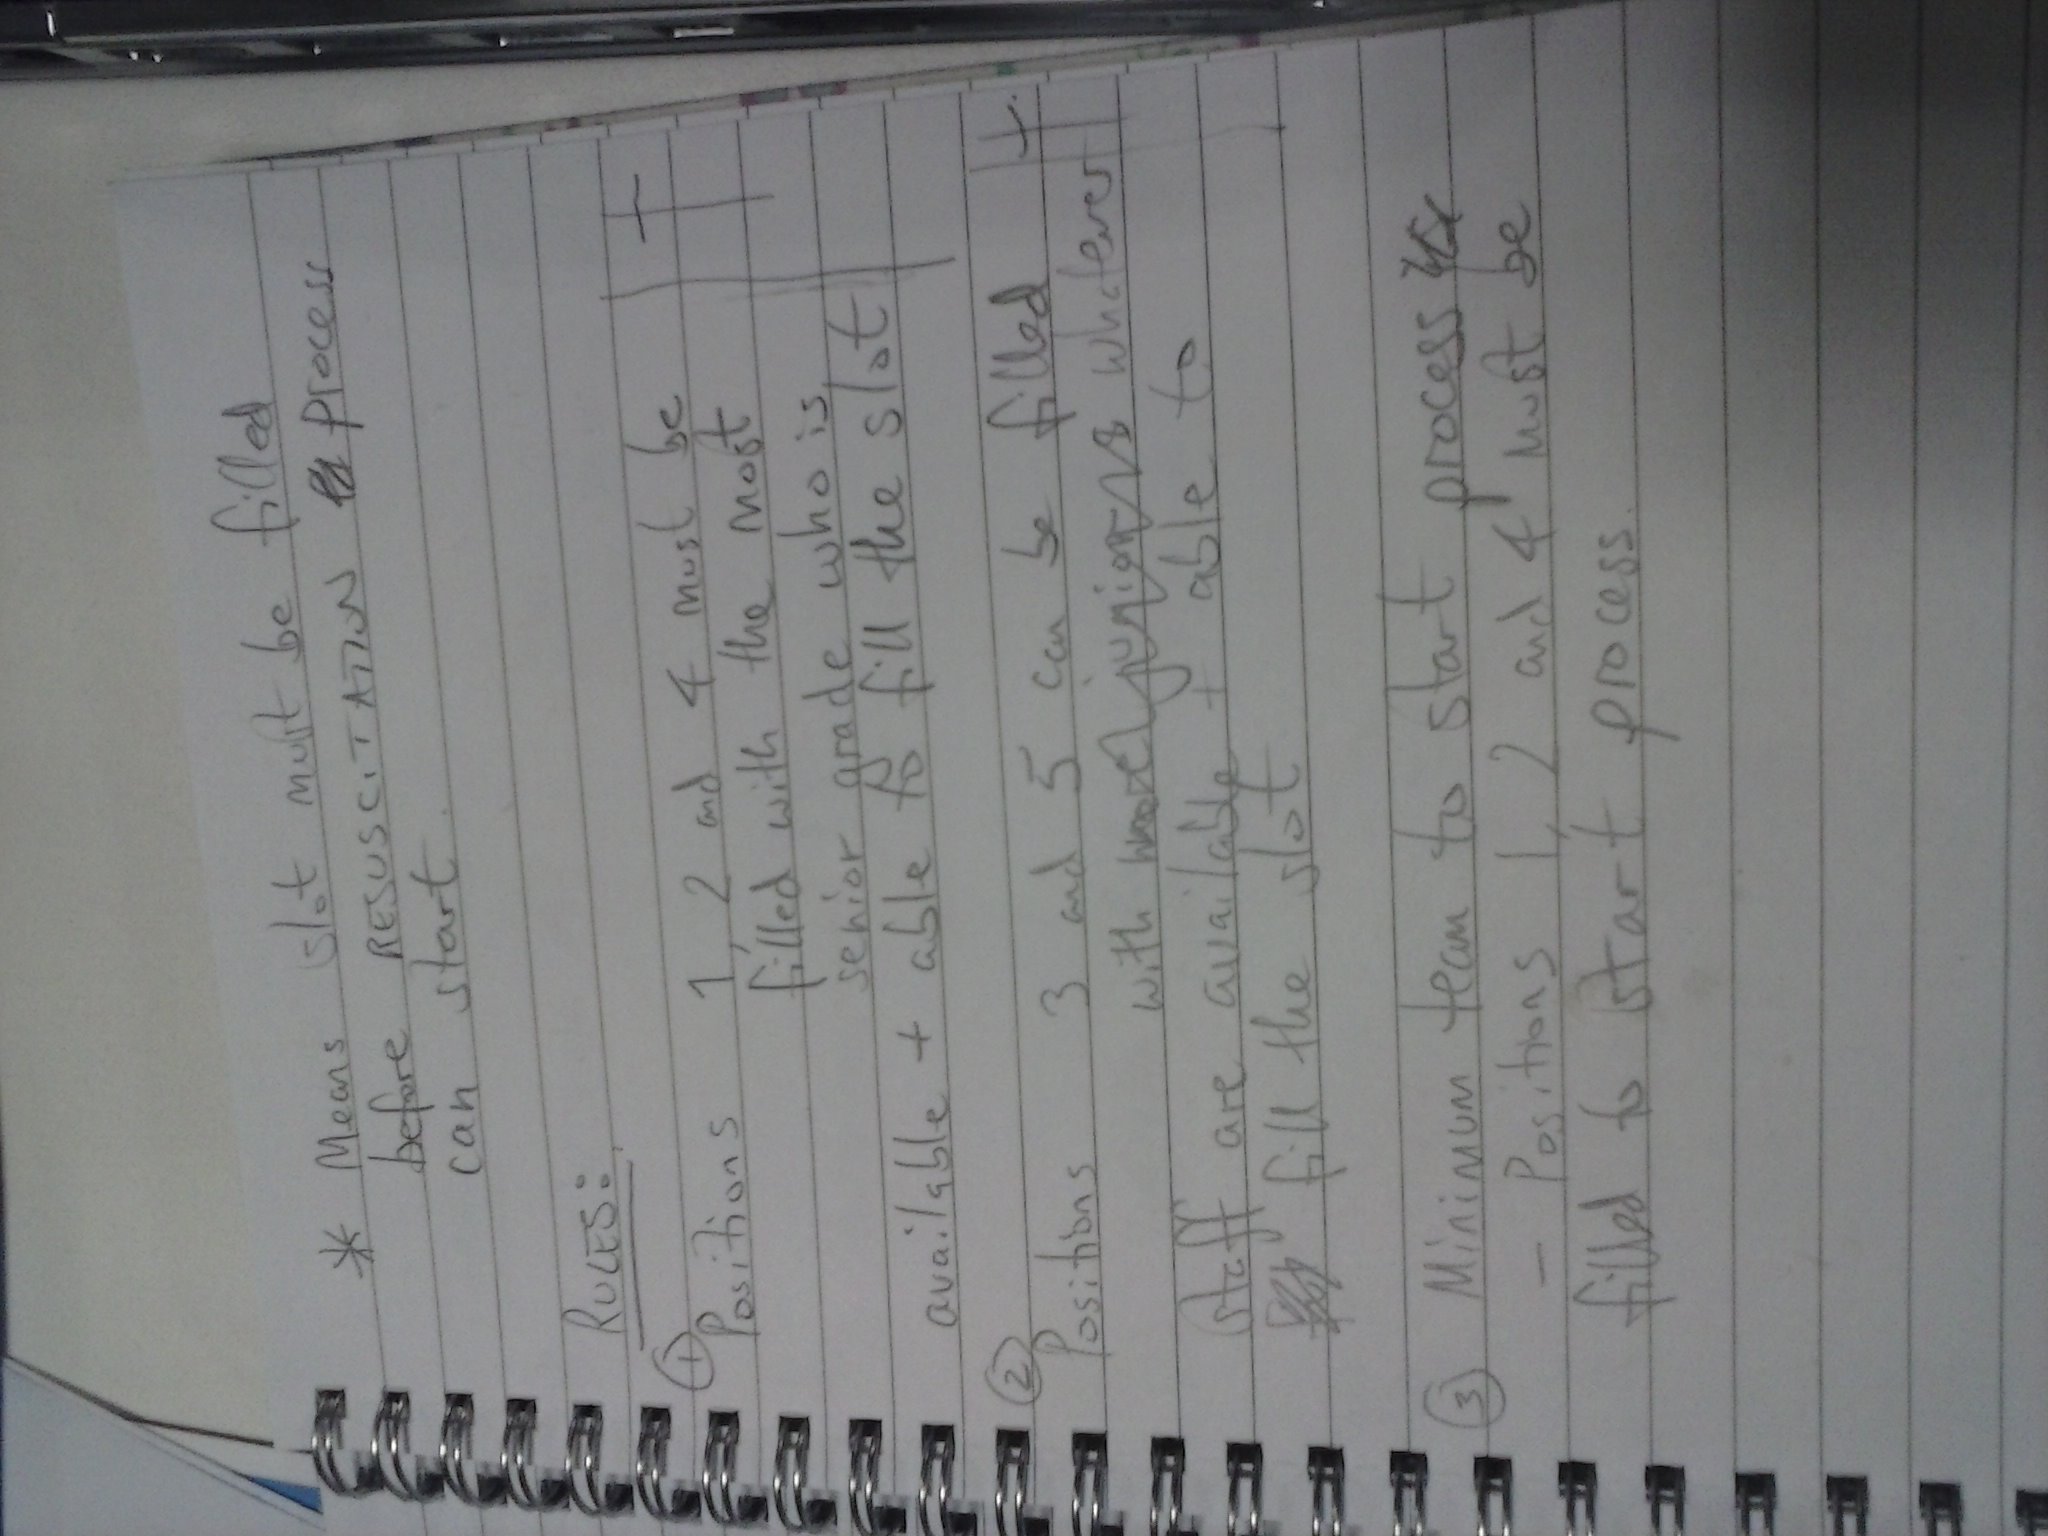 * Means slot must be filled
before RESUSCITATION process
can start.
RULES:
① Positions 1, 2 and 4 must be
filled with the most
senior grade who is
available + able to fill the slot
② Positions 3 and 5 can be filled
with whatever
staff are available + able to
fill the slot
③ Minimum team to start process
- Positions 1, 2 and 4 must be
filled to start process.